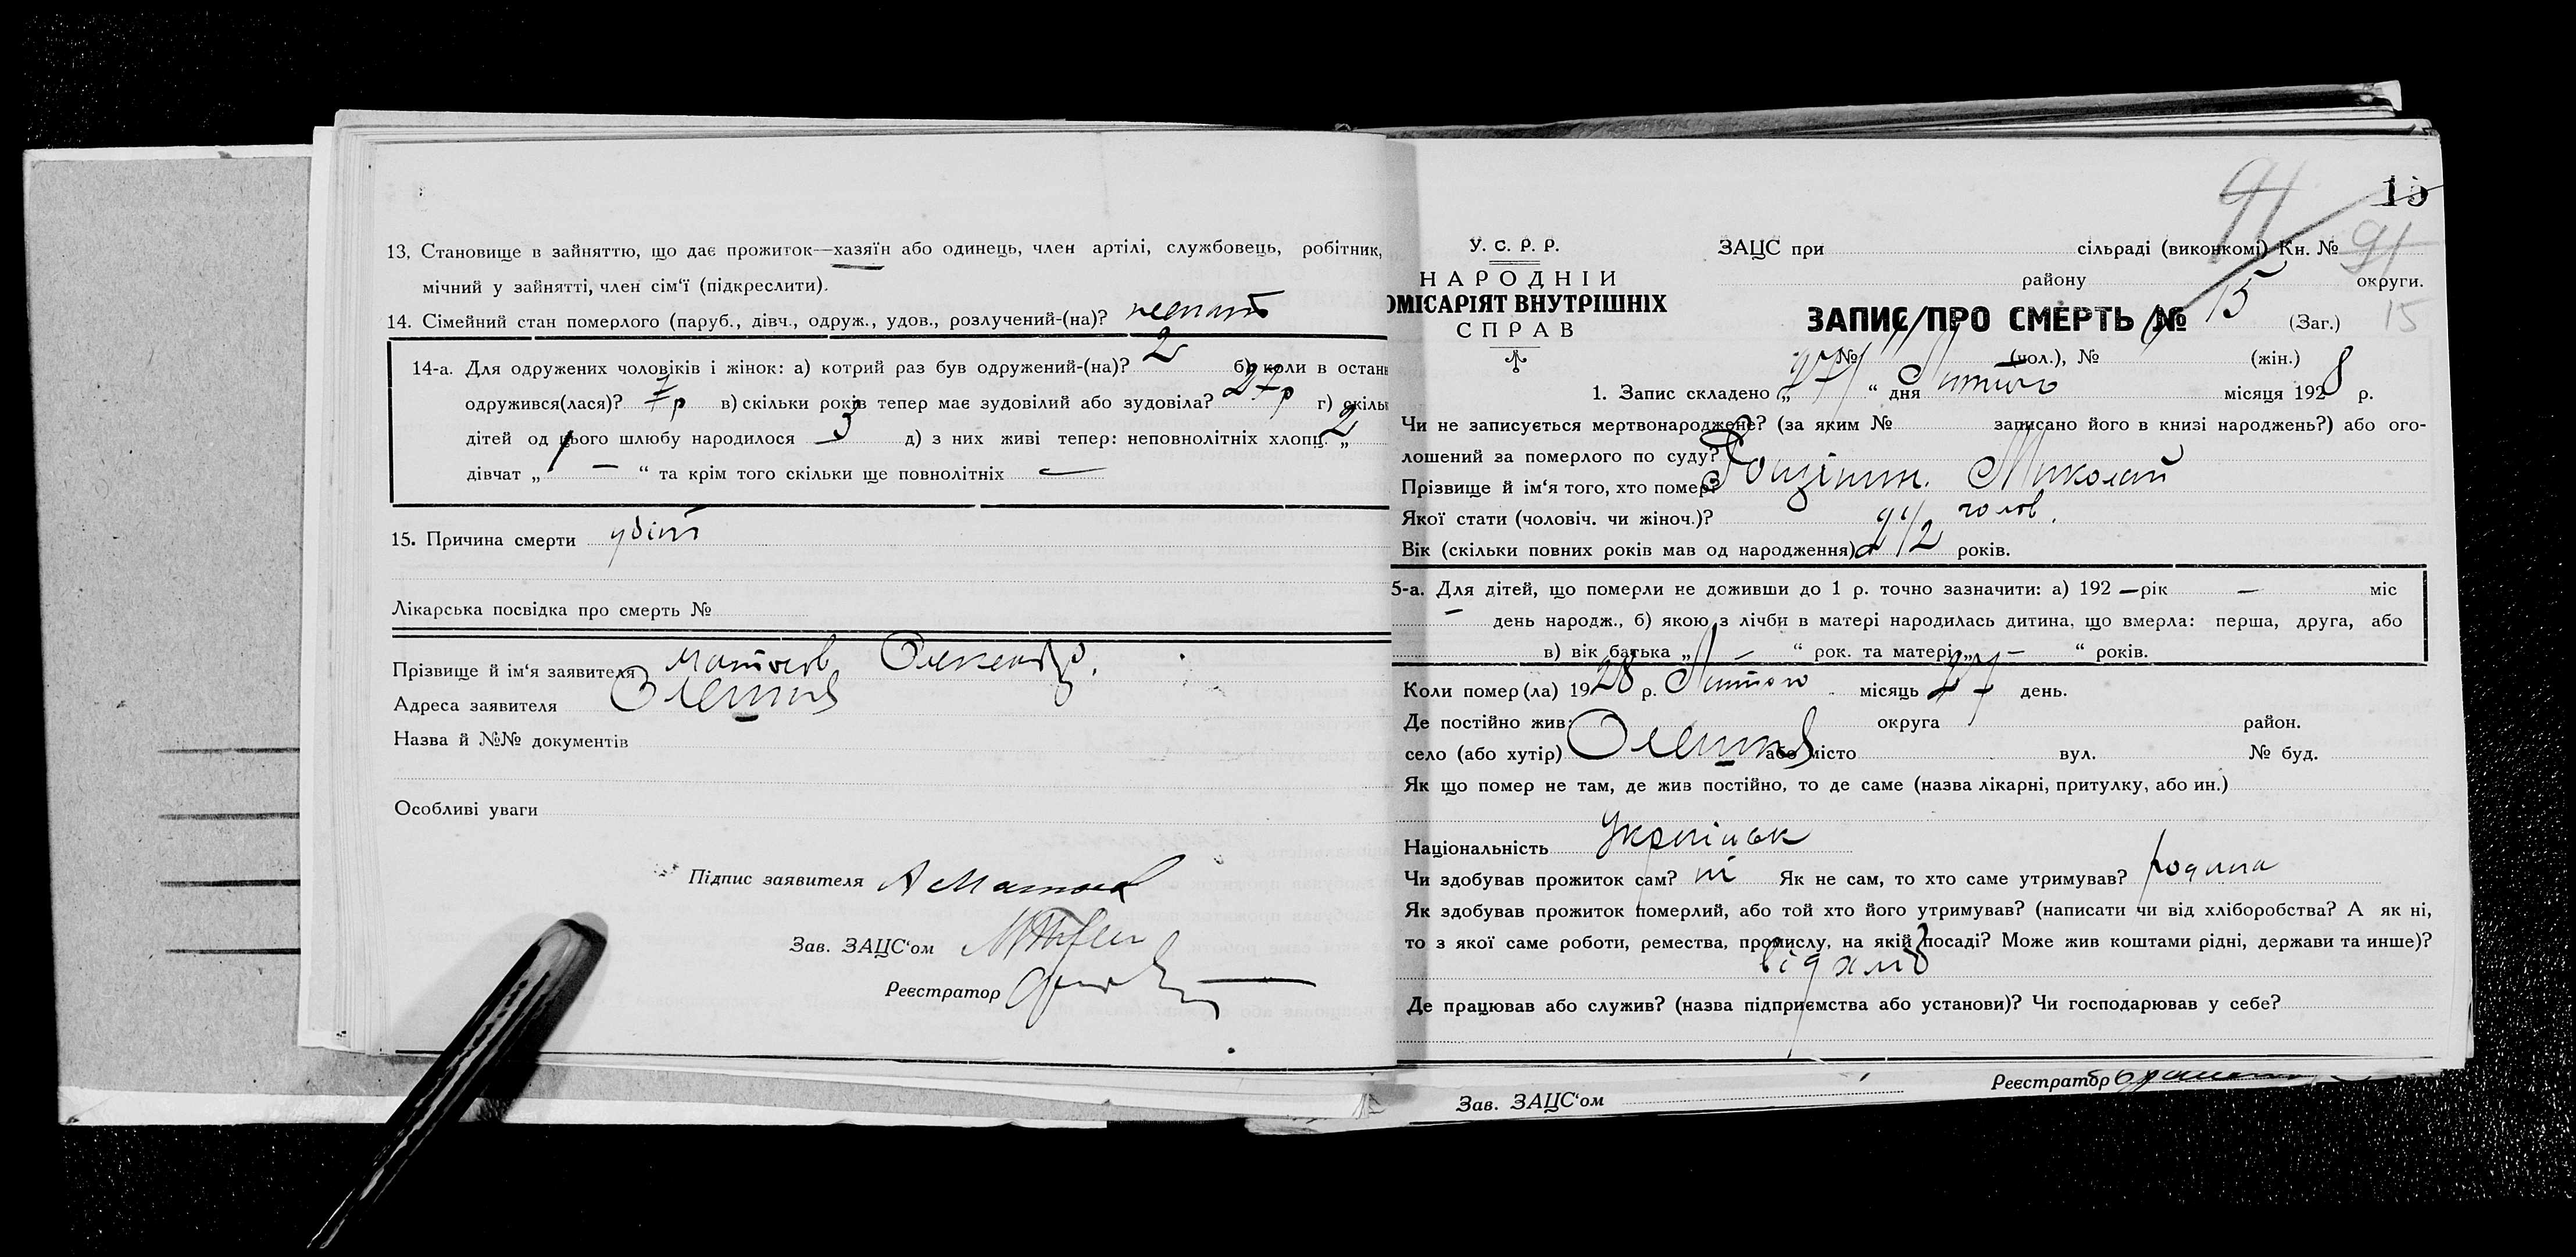 13. Становище в зайняттю, що дає прожиток—хазяїн або одинець, член артілі, службовець, робітник,
мічний у зайнятті, член сім‘ї (підкреслити).
14. Сімейний стан померлого (паруб., дівч., одруж., удов., розлучений-(на)?
14-а. Для одружених чоловіків і жінок: а) котрий раз був одружений-(на)? 2 б) коли в останн
одружився(лася)? р в) скільки років тепер має зудовілий або зудовіла? 27 р г) скільк
дітей од цього шлюбу народилося 3 д) з них живі тепер: неповнолітніх хлопц. „ 2
дівчат „ — “ та крім того скільки ще повнолітніх —
15. Причина смерти убит
Лікарська посвідка про смерть №
Прізвище й ім‘я заявителя Олександр.
Адреса заявителя
Назва й №№ документів
Особливі уваги
Підпис заявителя
Зав. ЗАЦС‘ом
Реєстратор
15
91
У. С. Р. Р.
НАРОДНІЙ
ОМІСАРІЯТ ВНУТРІШНІХ
СПРАВ
ЗАЦС при сільраді (виконкомі) Кн. № 91
району округи.
ЗАПИС ПРО СМЕРТЬ № 15 (Заг.) 15
№ (чол.), № (жін.)
1. Запис складено „ 27 “ дня Лютого місяця 1928 р.
Чи не записується мертвонароджене? (за яким № записано його в книзі народжень?) або ого-
лошений за померлого по суду?
Прізвище й ім‘я того, хто помер? Миколай
Якої стати (чоловіч. чи жіноч.)? чолов.
Вік (скільки повних років мав од народження) 2 1/2 років.
5-а. Для дітей, що померли не доживши до 1 р. точно зазначити: а) 192 — рік — міс
— день народж., б) якою з лічби в матері народилась дитина, що вмерла: перша, друга, або
в) вік батька „ — “ рок. та матері „ — “ років.
Коли помер(ла) 1928 р. Лютого місяць 27 день.
Де постійно жив: округа район.
село (або хутір) або місто вул. № буд.
Як що помер не там, де жив постійно, то де саме (назва лікарні, притулку, або ин.)
Національність Українськ
Чи здобував прожиток сам? ні Як не сам, то хто саме утримував? родина
Як здобував прожиток померлий, або той хто його утримував? (написати чи від хліборобства? А як ні,
то з якої саме роботи, ремества, промислу, на якій посаді? Може жив коштами рідні, держави та инше)?
від хліб
Де працював або служив? (назва підприємства або установи)? Чи господарював у себе?
Зав. ЗАЦС‘ом Реєстратор